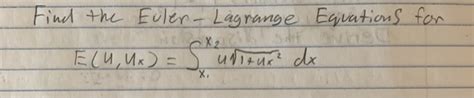 Find the Euler-Lagrange Equations for
E(u, uₓ) = ∫ₓ₁ˣ² u√(1+uₓ²) dx